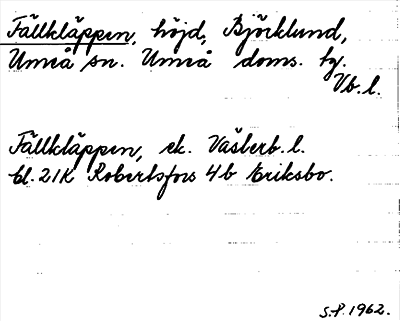 Fällkläppen, höjd, Björklund,
Umeå sn. Umeå doms. hg.
Vb. l.
Fällkläppen, ek. Västerb. l.
bl. 21K Robertsfors 4b Eriksbo.
S.P. 1962.